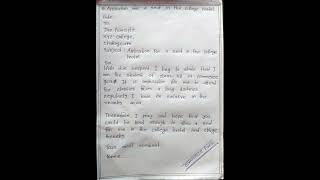 Application for a seat in the college hostel
To
The Principal
XYZ college,
Subject: Application for a seat in the college
hostel
Sir,
With due respect I beg to state that I
am the student of class XI in commerce
group. It is impossible for me to attend
the classes from a long distance
regularly. I have no relative in the
nearby area.
Therefore I pray and hope that you
would be kind enough to allow a seat
for me in the college hostel and oblige
thereby
Yours most obedient
Name